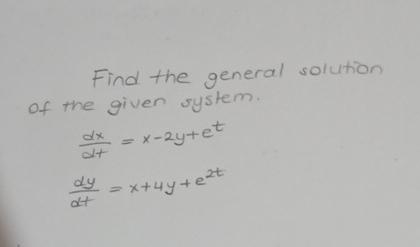 Find the general solution
of the given system.
dx/dt = x-2y+e^t
dy/dt = x+4y+e^2t